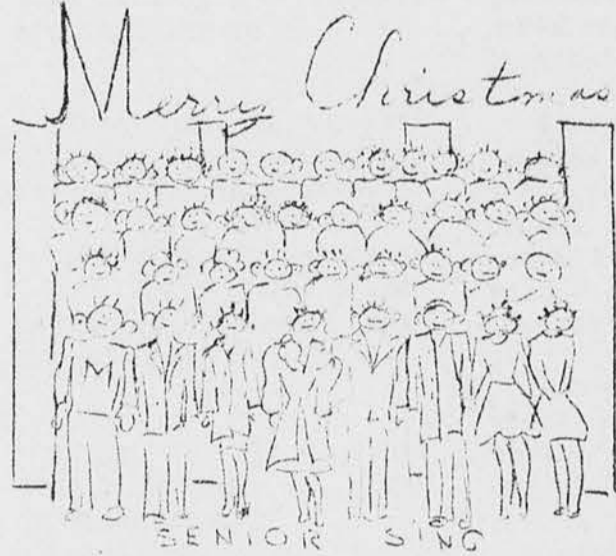 Merry Christmas
M
SENIOR SING